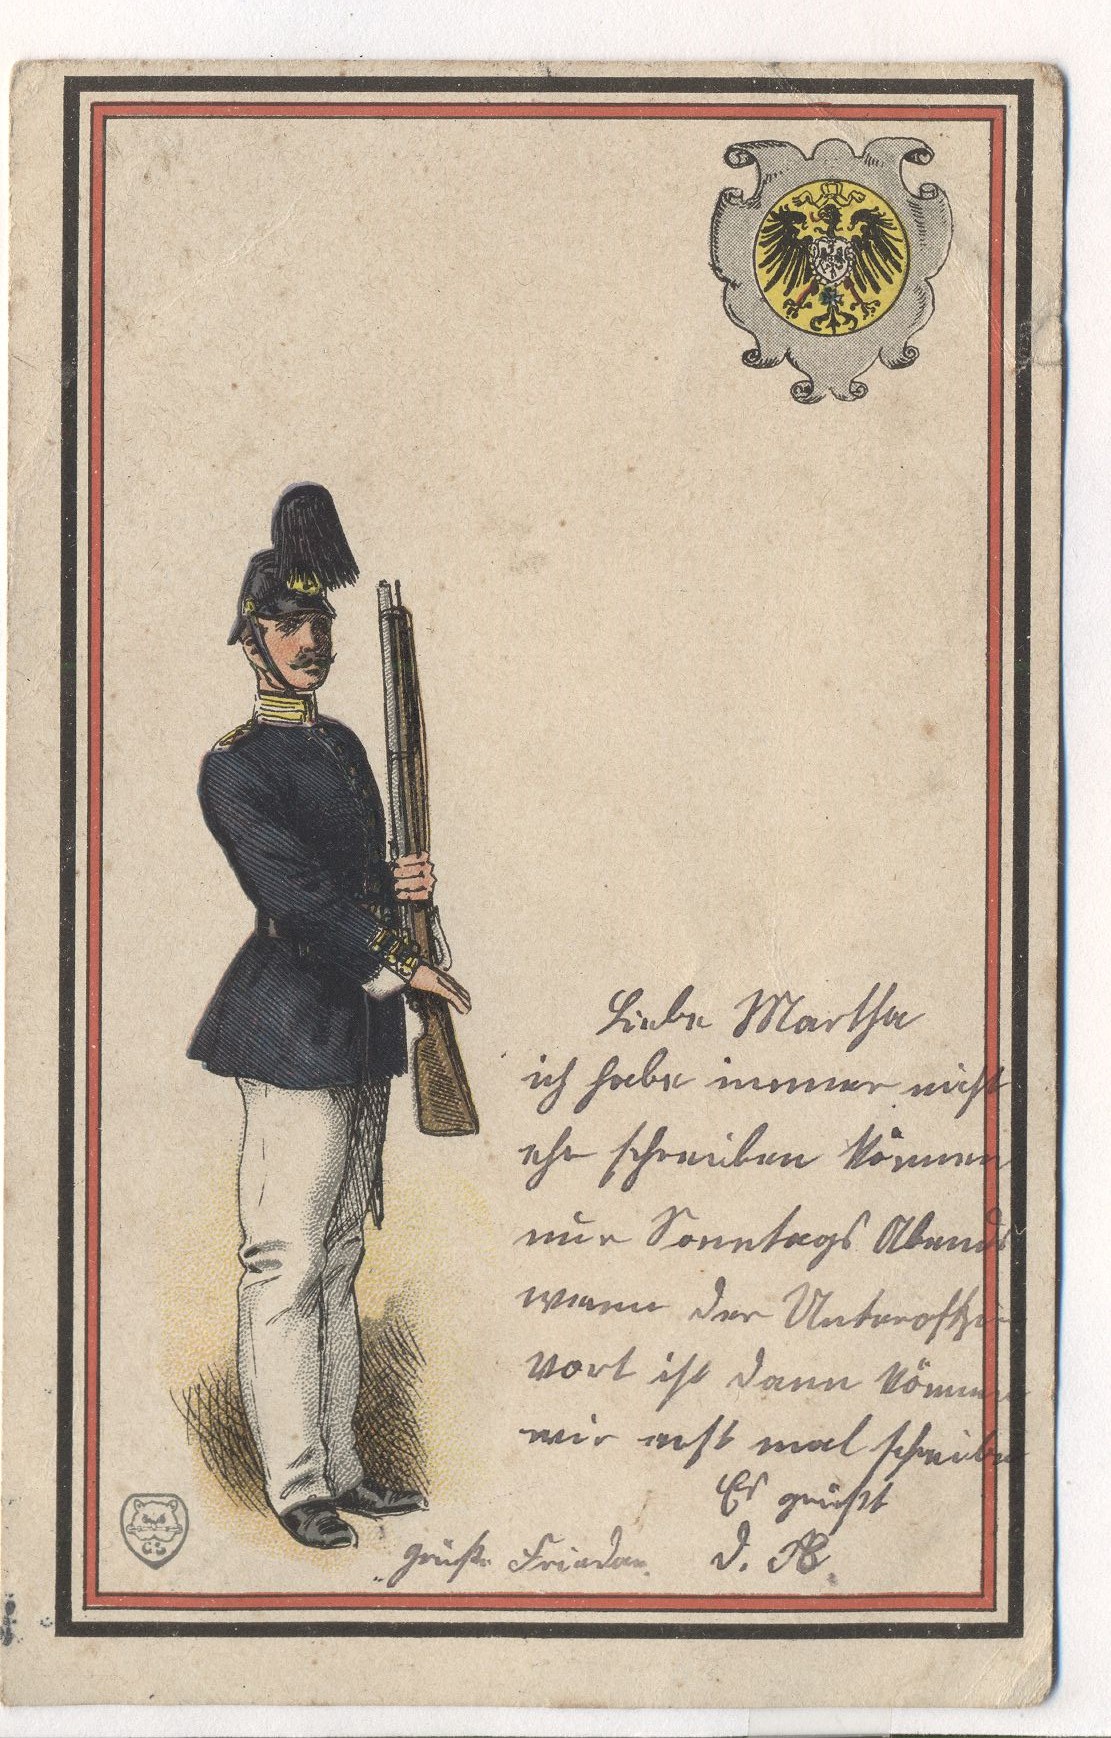 Liebe Martha
ich habe immer nicht
ehr schreiben können
nur Sonntags Abends
wenn der Unteroffzir
vort ist dann können
wir erst mal schreiben
Es grüßt
grüße Frieda D. A.
GS